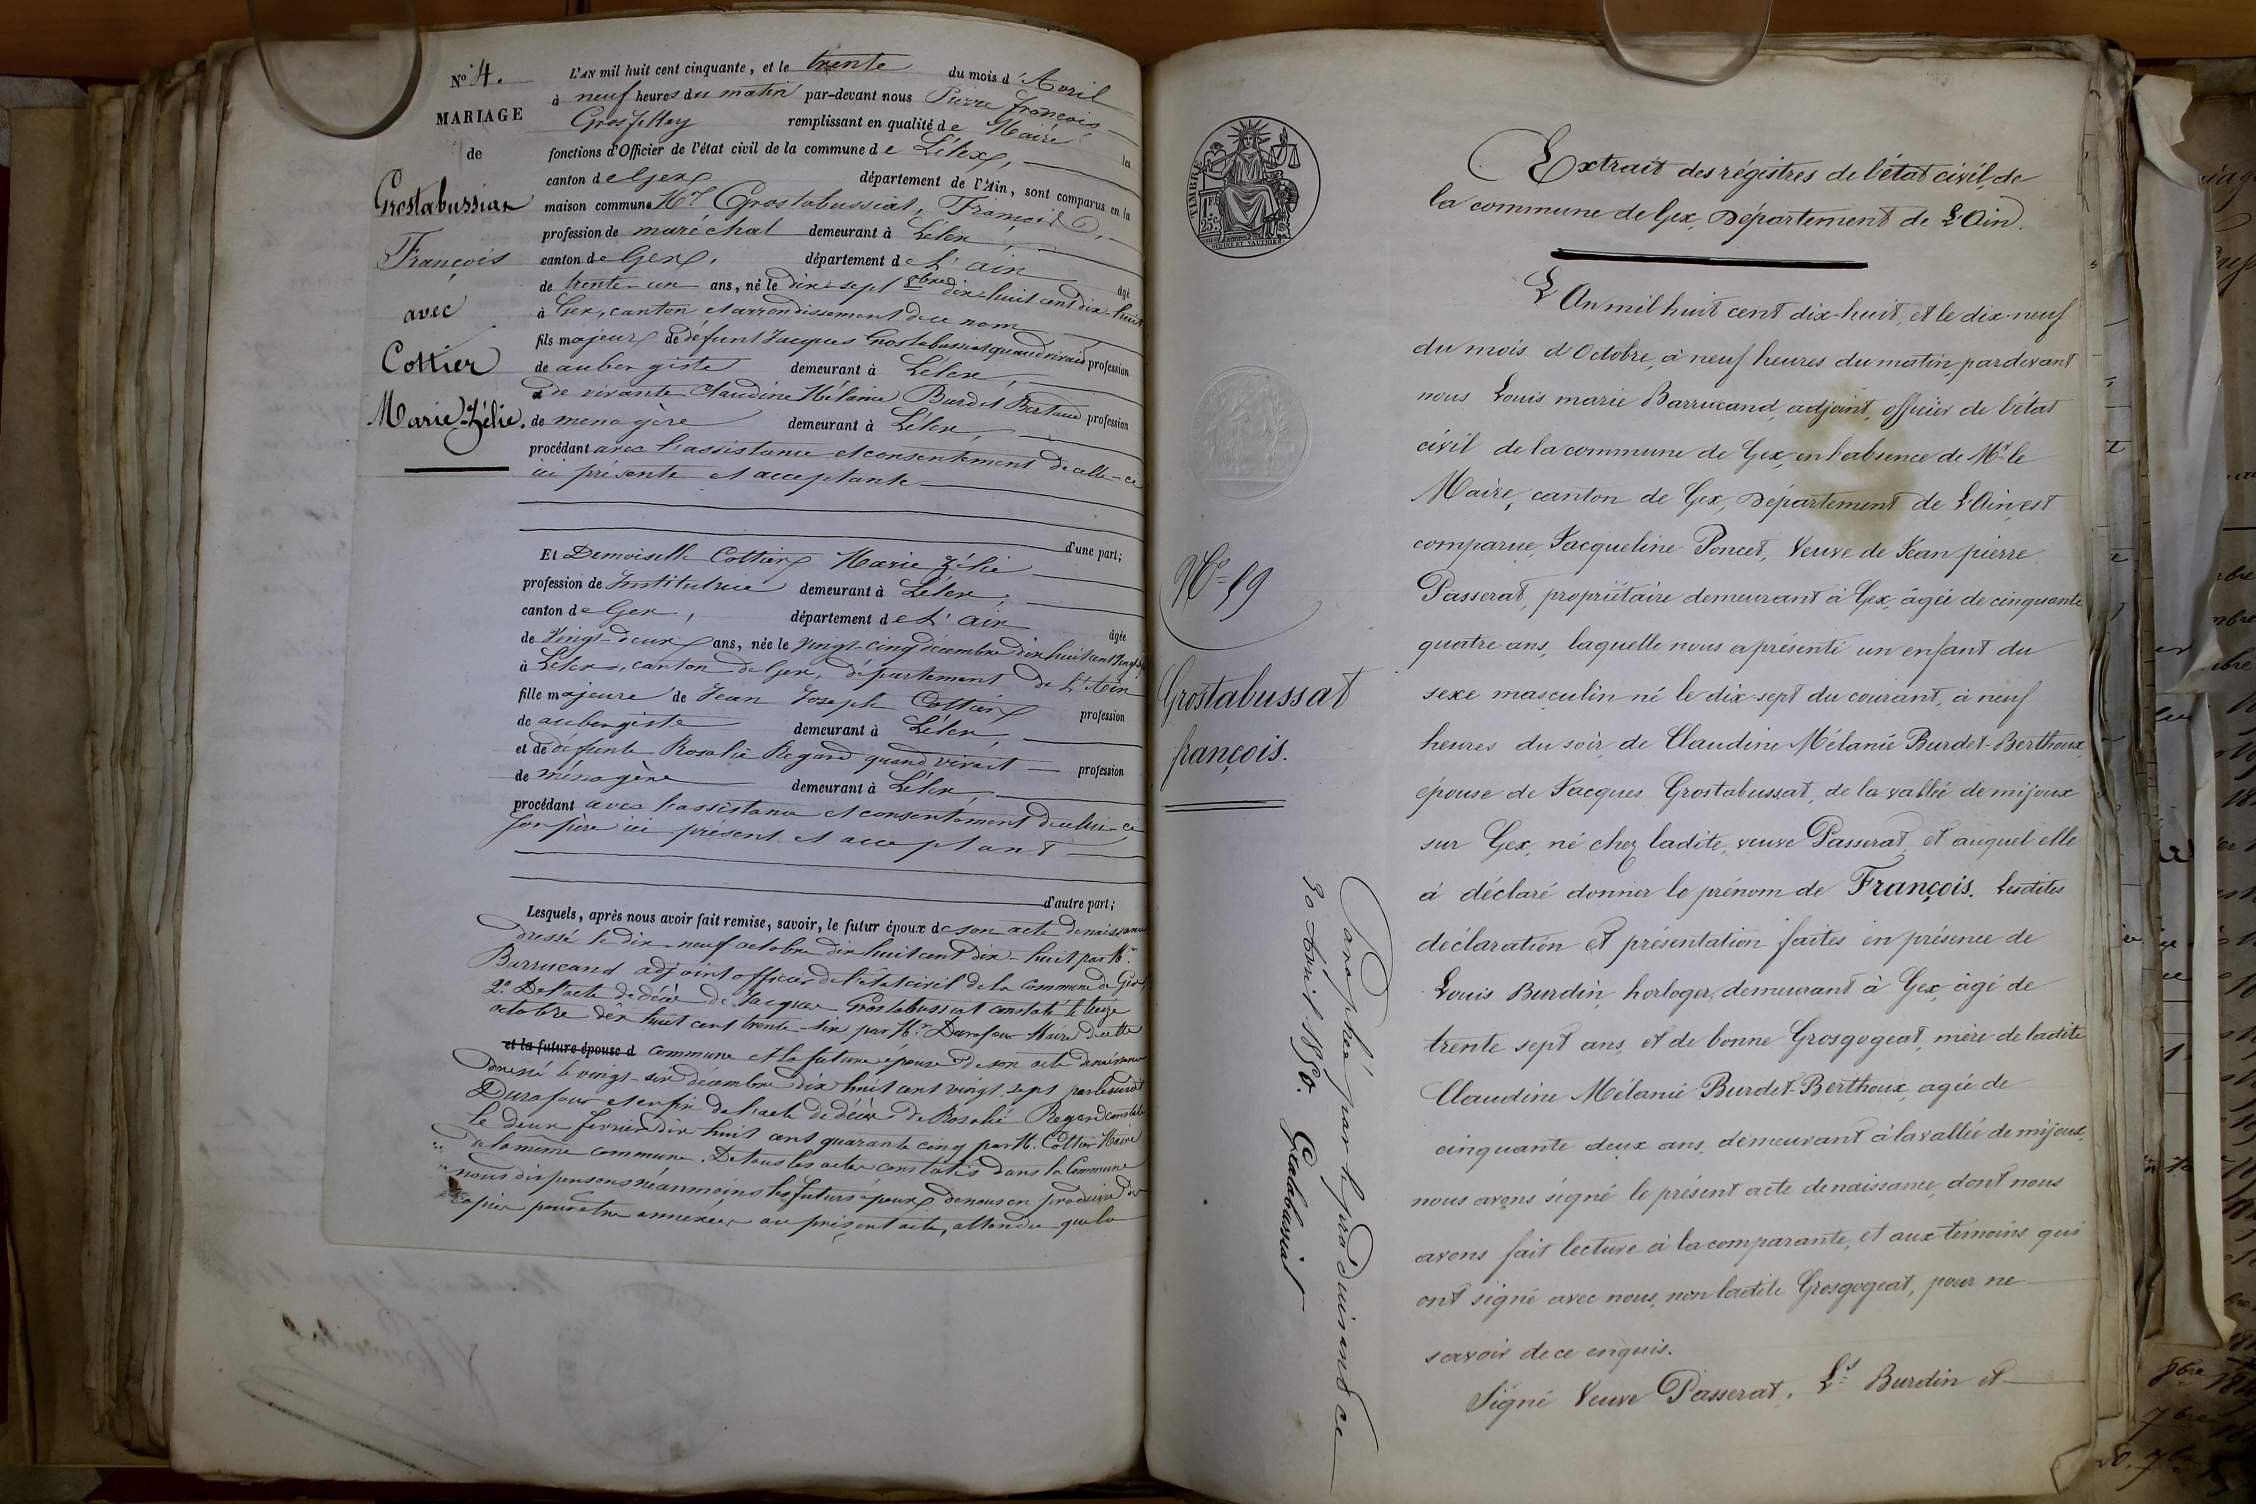 N° 4.
MARIAGE
de
Grostabussiat
François
avec
Cottier
Marie-Zélie.
L'AN mil huit cent cinquante, et le trente du mois d'Avril
à neuf heures du matin par-devant nous Pierre François
Grosfilley remplissant en qualité de Maire les
fonctions d'Officier de l'état civil de la commune de Lélex,
canton de Gex département de l'Ain, sont comparus en la
maison commune Mr Grostabussiat, François,
profession de maréchal demeurant à Lélex,
canton de Gex, département de L'ain âgé
de trente-un ans, né le dix-sept 8bre dix-huit cent dix-huit
à Gex, canton et arrondissement de ce nom
fils majeur de défunt Jacques Grostabussiat quand vivait profession
de aubergiste demeurant à Lélex,
& de vivante Claudine Mélanie Burdet Berthoux profession
de menagère demeurant à Lélex,
procédant avec l'assistance et consentement de celle-ci
ici présente et acceptante
d'une part;
Et Demoiselle Cottier Marie Zélie
profession de Institutrice demeurant à Lélex,
canton de Gex, département de L'ain âgée
de Vingt-deux ans, née le vingt-cinq décembre dix huit cent vingt sept
à Lélex, canton de Gex, département de L'Ain
fille majeure de Jean Joseph Cottier profession
de aubergiste demeurant à Lélex,
et de défunte Rosalie Regard quand vivait profession
de ménagère demeurant à Lélex,
procédant avec l'assistance et consentement de celui-ci
son père ici présent et acceptant
d'autre part;
Lesquels, après nous avoir fait remise, savoir, le futur époux de son acte de naissance
dressé le dix-neuf octobre dix huit cent dix-huit par Mr
Barrucand adjoint officier de l'état civil de la commune de Gex,
2° De l'acte de décès de Jacques Grostabussiat constaté le treize
octobre dix huit cent trente-six par Mr Durafour Maire de cette
et la future épouse d commune et la future épouse de son acte de naissance
dressé le vingt-six décembre dix huit cent vingt-sept par le susdit
Durafour et enfin de l'acte de décès de Rosalie Regard constaté
le deux fevrier dix huit cent quarante cinq par M. Cottier Maire
de la même commune. De tous les actes constatés dans la Commune
nous dispensons néanmoins les futurs époux de nous en produire des
copies pour être annexées au présent acte, attendu que la
Extrait des régistres de l'état civil, de
la commune de Gex, Département de L'Ain.
L'An mil huit cent dix-huit, et le dix-neuf
du mois d'Octobre, à neuf heures du matin, pardevant
nous Louis marie Barrucand, adjoint, officier de l'état
civil de la commune de Gex, en l'absence de Mr le
Maire, canton de Gex, Département de L'Ain, est
comparue, Jacqueline Poncet, Veuve de Jean pierre
Passerat, propriétaire demeurant à Gex, âgée de cinquante
quatre ans, laquelle nous a présenté un enfant du
sexe masculin né le dix-sept du courant, à neuf
heures du soir, de Claudine Mélanie Burdet-Berthoux,
épouse de Jacques Grostabussat, de la vallée de mijoux
sur Gex, né chez ladite, veuve Passerat, et auquel elle
a déclaré donner le prénom de François. Lesdites
déclaration et présentation faites en présence de
Louis Burdin, horloger, demeurant à Gex, âgé de
trente sept ans, et de bonne Grosgogeat, mère de ladite
Claudine Mélanie Burdet-Berthoux, agée de
cinquante deux ans, demeurant à la vallée de mijoux,
nous avons signé le présent acte de naissance, dont nous
avons fait lecture à la comparante, et aux témoins qui
ont signé avec nous, non ladite Grosgogeat, pour ne
savoir de ce enquis.
Signé Veuve Passerat, Ls Burdin et
N° 19
Grostabussat
françois.
Paraphé par le produisant ce
30 Avril 1850. Grostabussiat
TIMBRE